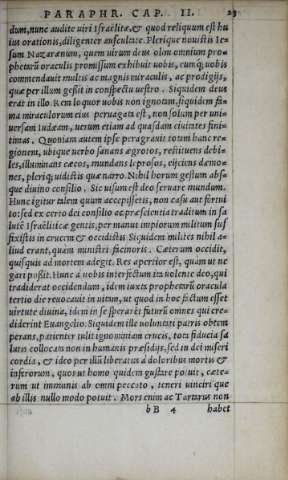 PARAPHR. CAP. II.
dum, nunc audite viri Israëlitæ, & quod reliquum est hu
ius orationis, diligenter auscultate. Plerique nouistis Ie-
sum Nazarænum, quem uirum deus olim omnium pro-
phetarū oraculis promissum exhibuit uobis, eumq; uobis
commendauit multis ac magnis miraculis, ac prodigijs,
quæ per illum gessit in conspectu uestro. Siquidem deus
erat in illo. Rem loquor uobis non ignotam, siquidem fa-
ma miraculorum eius peruagata est, non solum per uni-
uersam Iudæam, uerum etiam ad quasdam ciuitates fini-
timas. Quoniam autem ipse peragrauit totam hanc re-
gionem, ubique uerbo sanans ægrotos, restituens debi-
les, illuminans cæcos, mundans leprosos, eijciens dæmo-
nes, pleriq; uidistis quæ narro. Nihil horum gestum absq;
que diuino consilio. Sic uisum est deo seruare mundum.
Hunc igitur talem quum accepissetis, non casu aut fortui
to: sed ex certo dei consilio ac præscientia traditum in sa
lutē Israëliticæ gentis, per manus impiorum militum suf
fixistis in crucem & occidistis. Siquidem milites nihil a-
liud erant, quàm ministri facinoris. Cæterum occidit,
quisquis ad mortem adegit. Res apertior est, quàm ut ne
gari possit. Hunc à uobis interfectum ita uolente deo, qui
tradiderat occidendum, idem iuxta prophetarū oracula
tertio die reuocauit in uitam, ut quod in hoc factum esset
uirtute diuina, idem in se sperarēt futurū omnes qui cre-
diderint Euangelio. Siquidem ille uoluntati patris obtem
perans, patienter tulit ignominiam crucis, tota fiducia sa
lutis collocata non in humanis præsidijs, sed in dei miseri
cordia, & ideo per illū liberatus à doloribus mortis &
inferorum, quos ut homo quidem gustare potuit, cæte-
rum ut immunis ab omni peccato, teneri uinciri que
ab illis nullo modo potuit. Mors enim ac Tartarus non
bB 4 habet